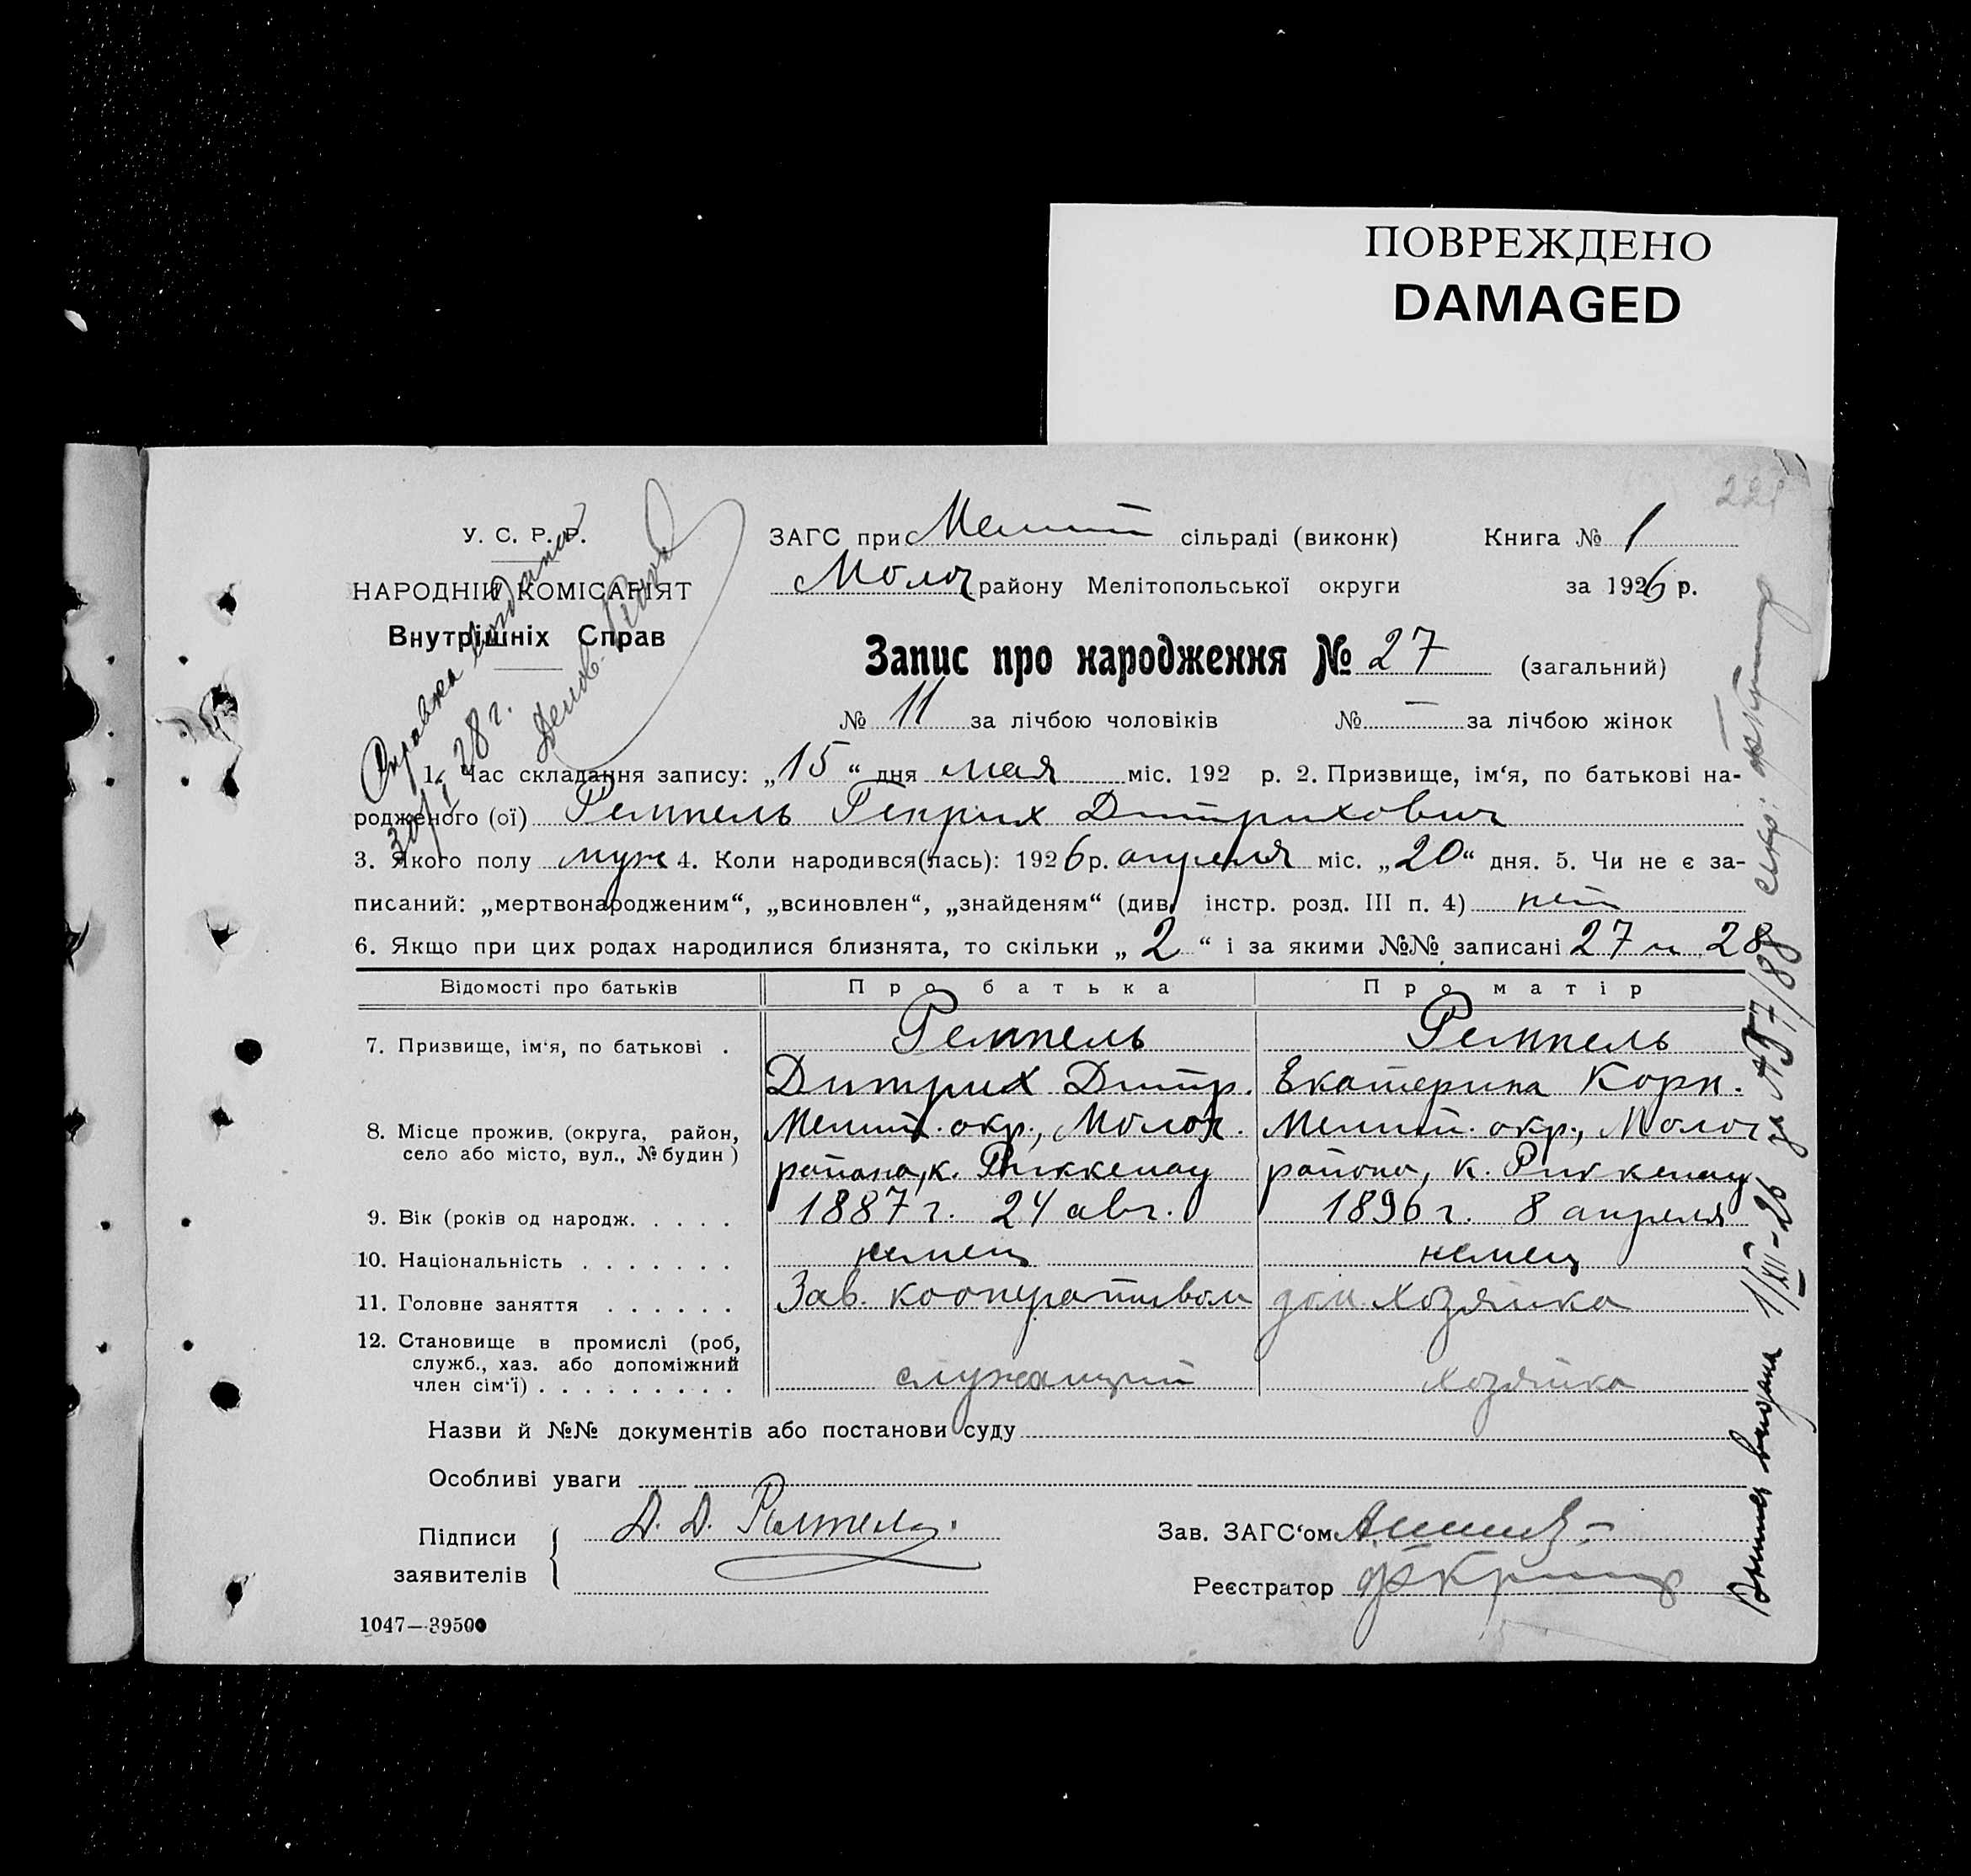 ПОВРЕЖДЕНО
DAMAGED
221
У. С. Р. Р.
НАРОДНІЙ КОМІСАРІЯТ
Внутрішніх Справ
ЗАГС при сільраді (виконк) Книга № 1
Молоч району Мелітопольської округи за 1926 р.
Запис про народження № 27 (загальний)
№ 11 за лічбою чоловіків № — за лічбою жінок
Справка выдана
30/I 28 г.
1. Час складання запису: „15“ дня мая міс. 192 р. 2. Призвище, ім‘я, по батькові на-
родженого (ої) Ремпель Генрих Дитрихович
3. Якого полу муж 4. Коли народився(лась): 1926 р. апреля міс. „20“ дня. 5. Чи не є за-
писаний: „мертвонародженим“, „всиновлен“, „знайденям“ (див. інстр. розд. III п. 4) нет
6. Якщо при цих родах народилися близнята, то скільки „2“ і за якими №№ записані 27 и 28
Відомості про батьків Про батька Про матір
7. Призвище, ім‘я, по батькові . Ремпель Ремпель
Дитрих Дитр. Екатерина Корн.
8. Місце прожив. (округа, район, Мелит. окр., Молоч. Мелит. окр., Молоч
село або місто, вул., № будин) района, к. Риккенау района, к. Риккенау
9. Вік (років од народж. . . . . 1887 г. 24 авг. 1896 г. 8 апреля
10. Національність . . . . . . . немец немец
11. Головне заняття . . . . . . Зав. кооперативом дом. хозяйка
12. Становище в промислі (роб,
служб., хаз. або допоміжний
член сім‘ї) . . . . . . . . . служащий хозяйка
Назви й №№ документів або постанови суду
Особливі уваги
Підписи Д. Д. Ремпель. Зав. ЗАГС‘ом
заявителів Реєстратор
1047—39500
выдана 1/XII-26 за № 57/88